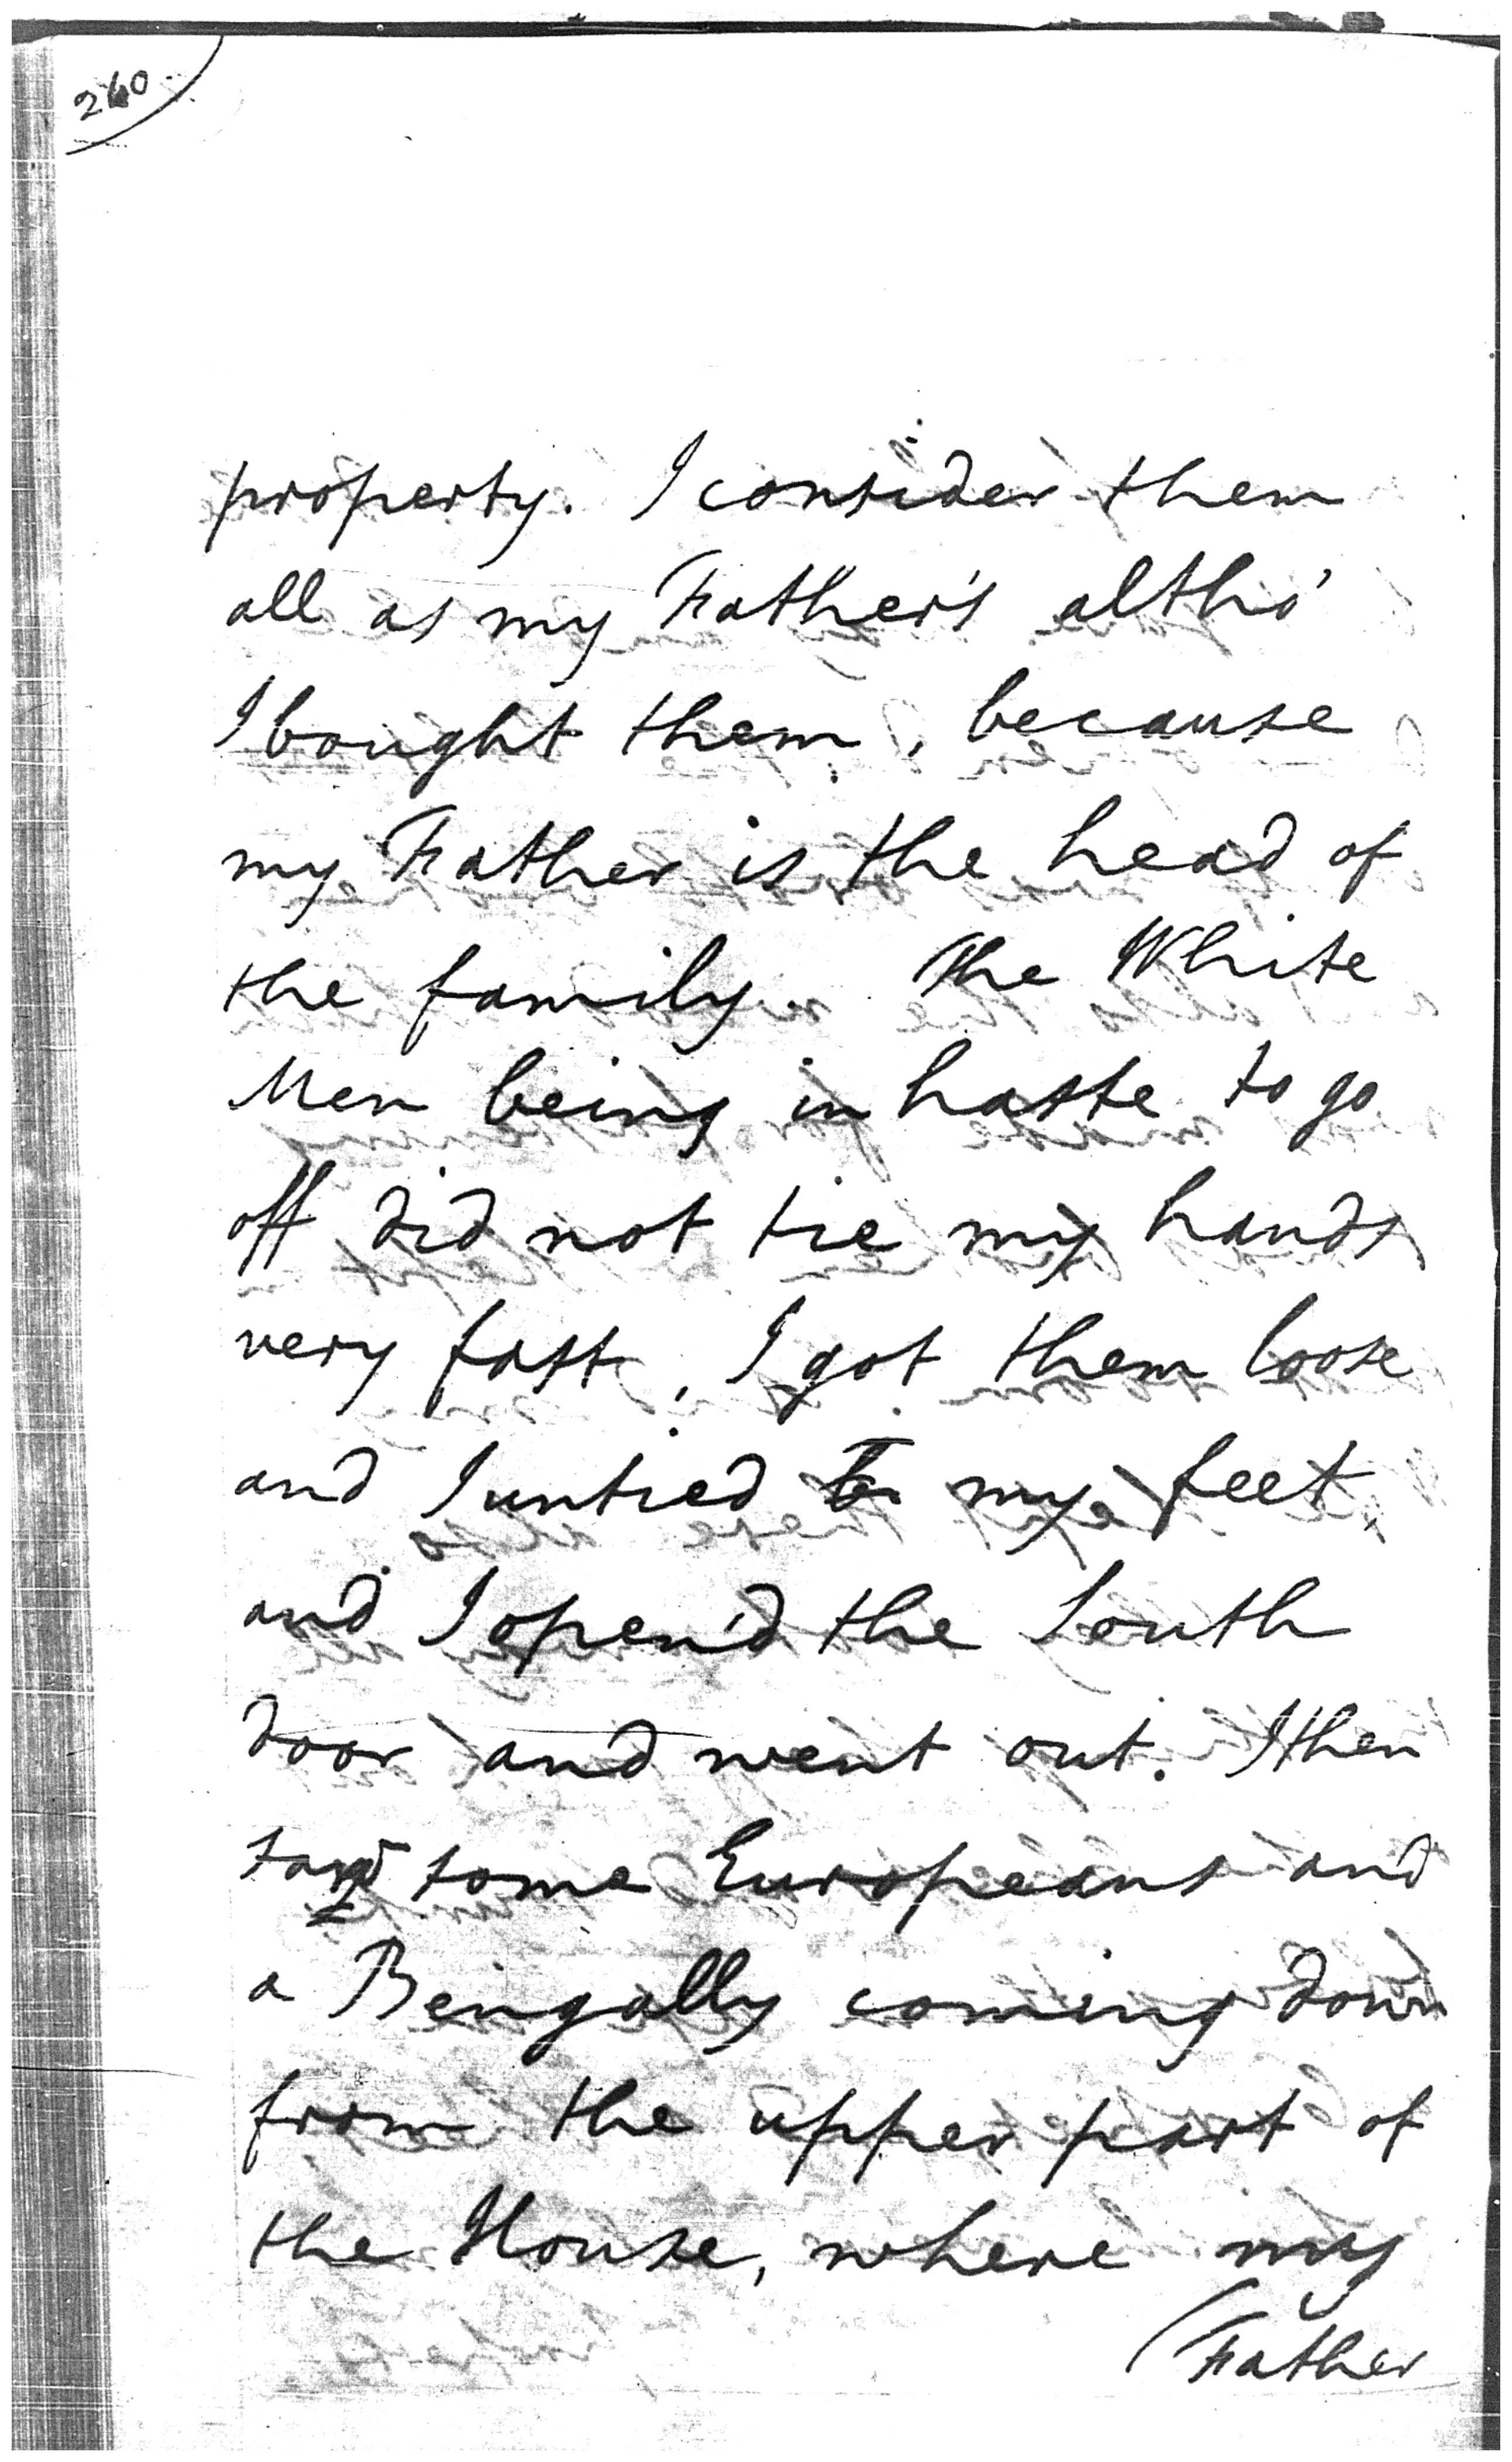 260
property. I consider them
all as my Father's altho'
I bought them, because
my Father is the head of
the family. The White
Men being in haste to go
off did not tie my hands
very fast, I got them loose
and I untied my feet
and I open'd the South
door and went out. I then
saw some Europeans and
a Bengally coming down
from the upper part of
the House, where my
Father